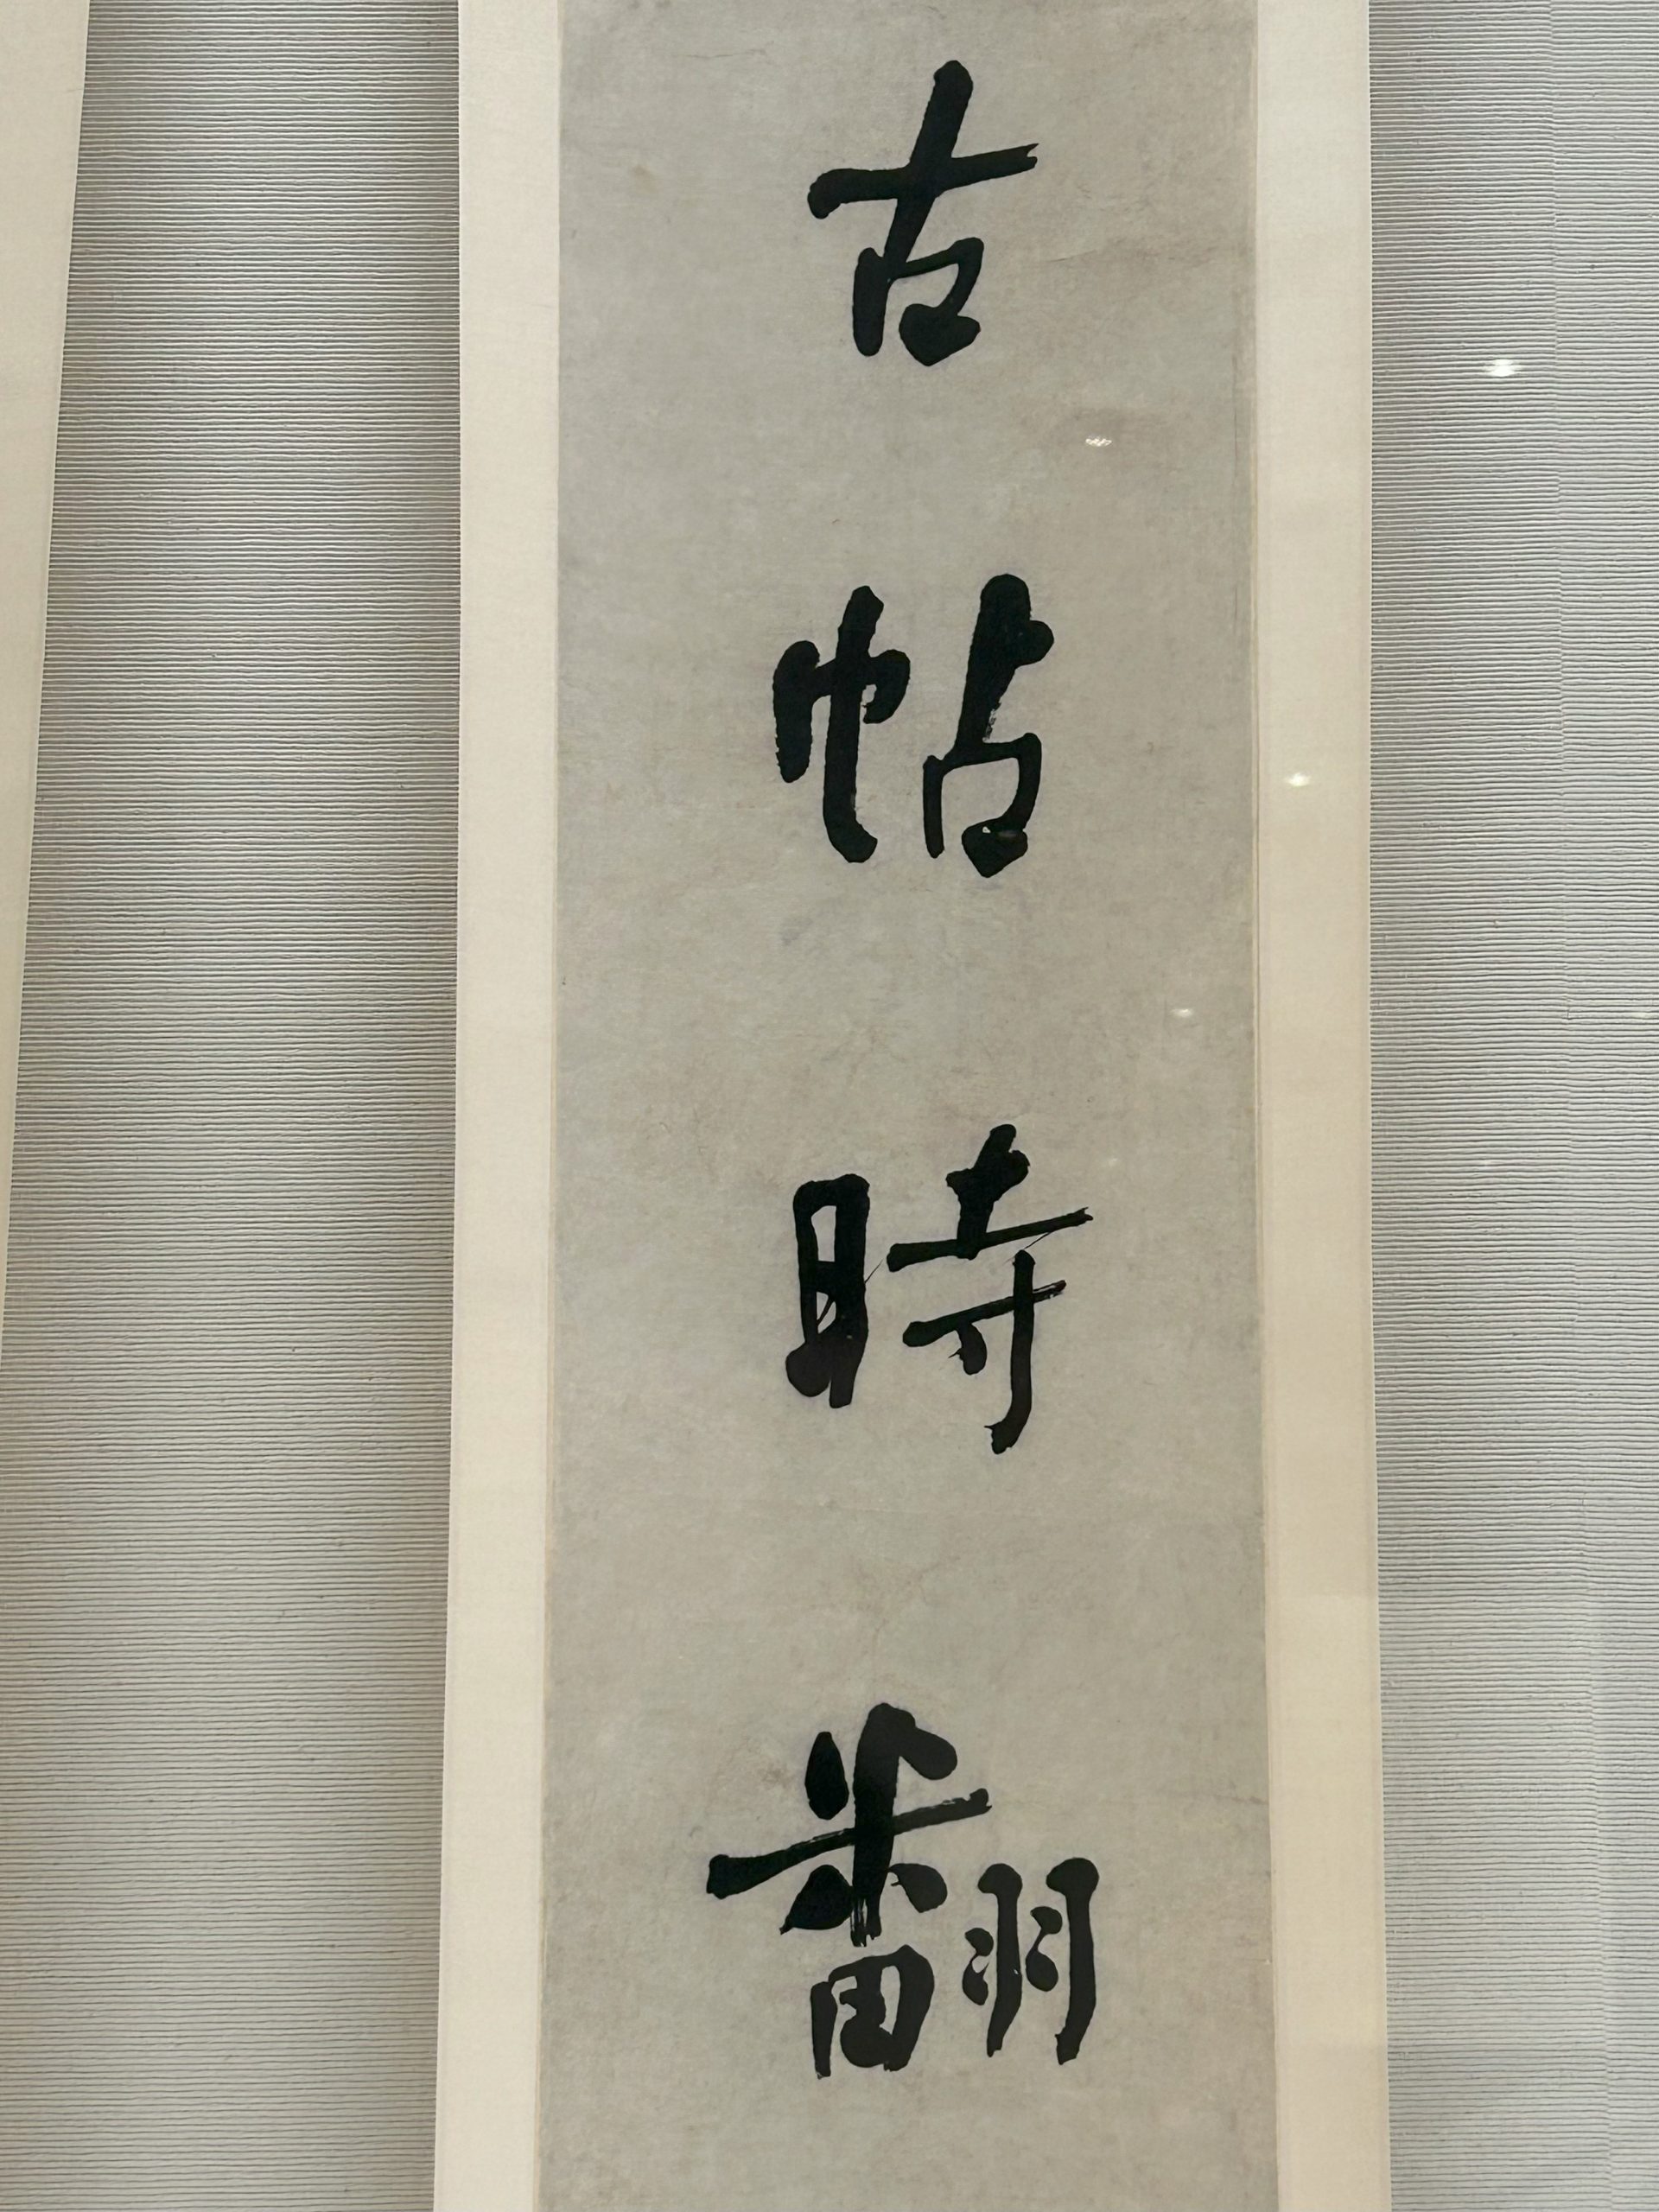 古帖時翻